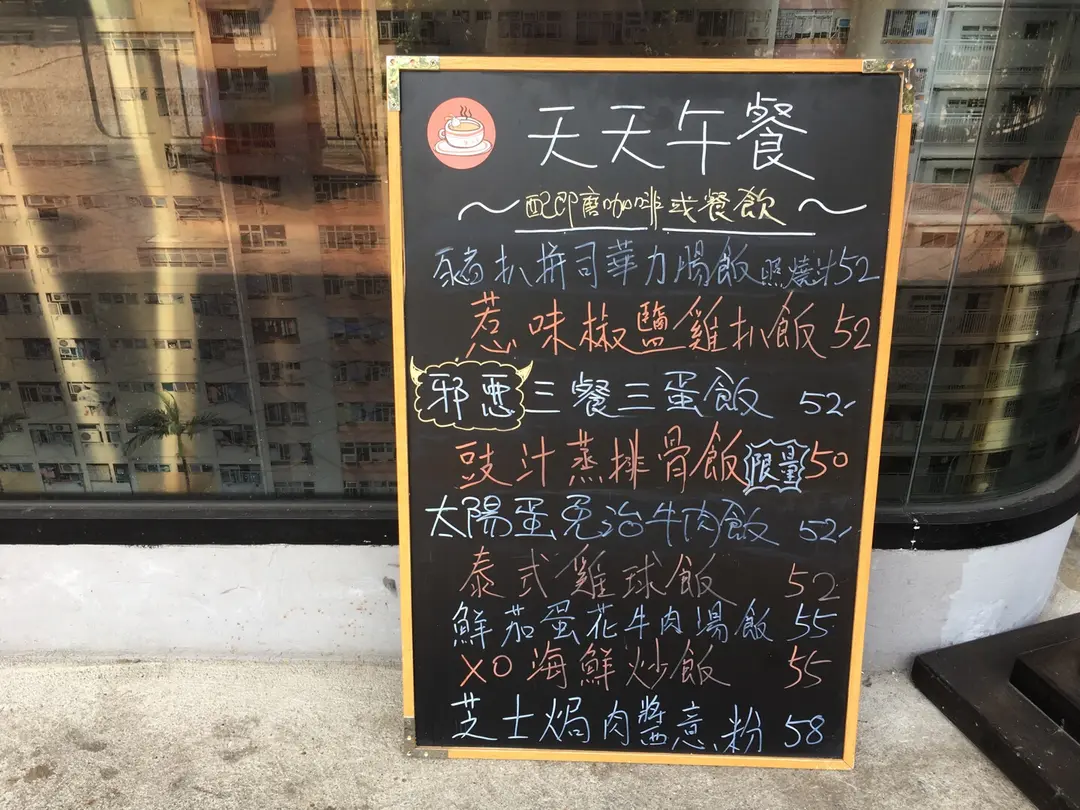 天天午餐
～配即磨咖啡或餐飲～
豬扒拼司華力腸飯 照燒汁52
惹味椒鹽雞扒飯52
邪惡三餐三蛋飯 52
豉汁蒸排骨飯 限量50
太陽蛋免治牛肉飯 52
泰式雞球飯 52
鮮茄蛋花牛肉湯飯 55
XO海鮮炒飯 55
芝士焗肉醬意粉 58